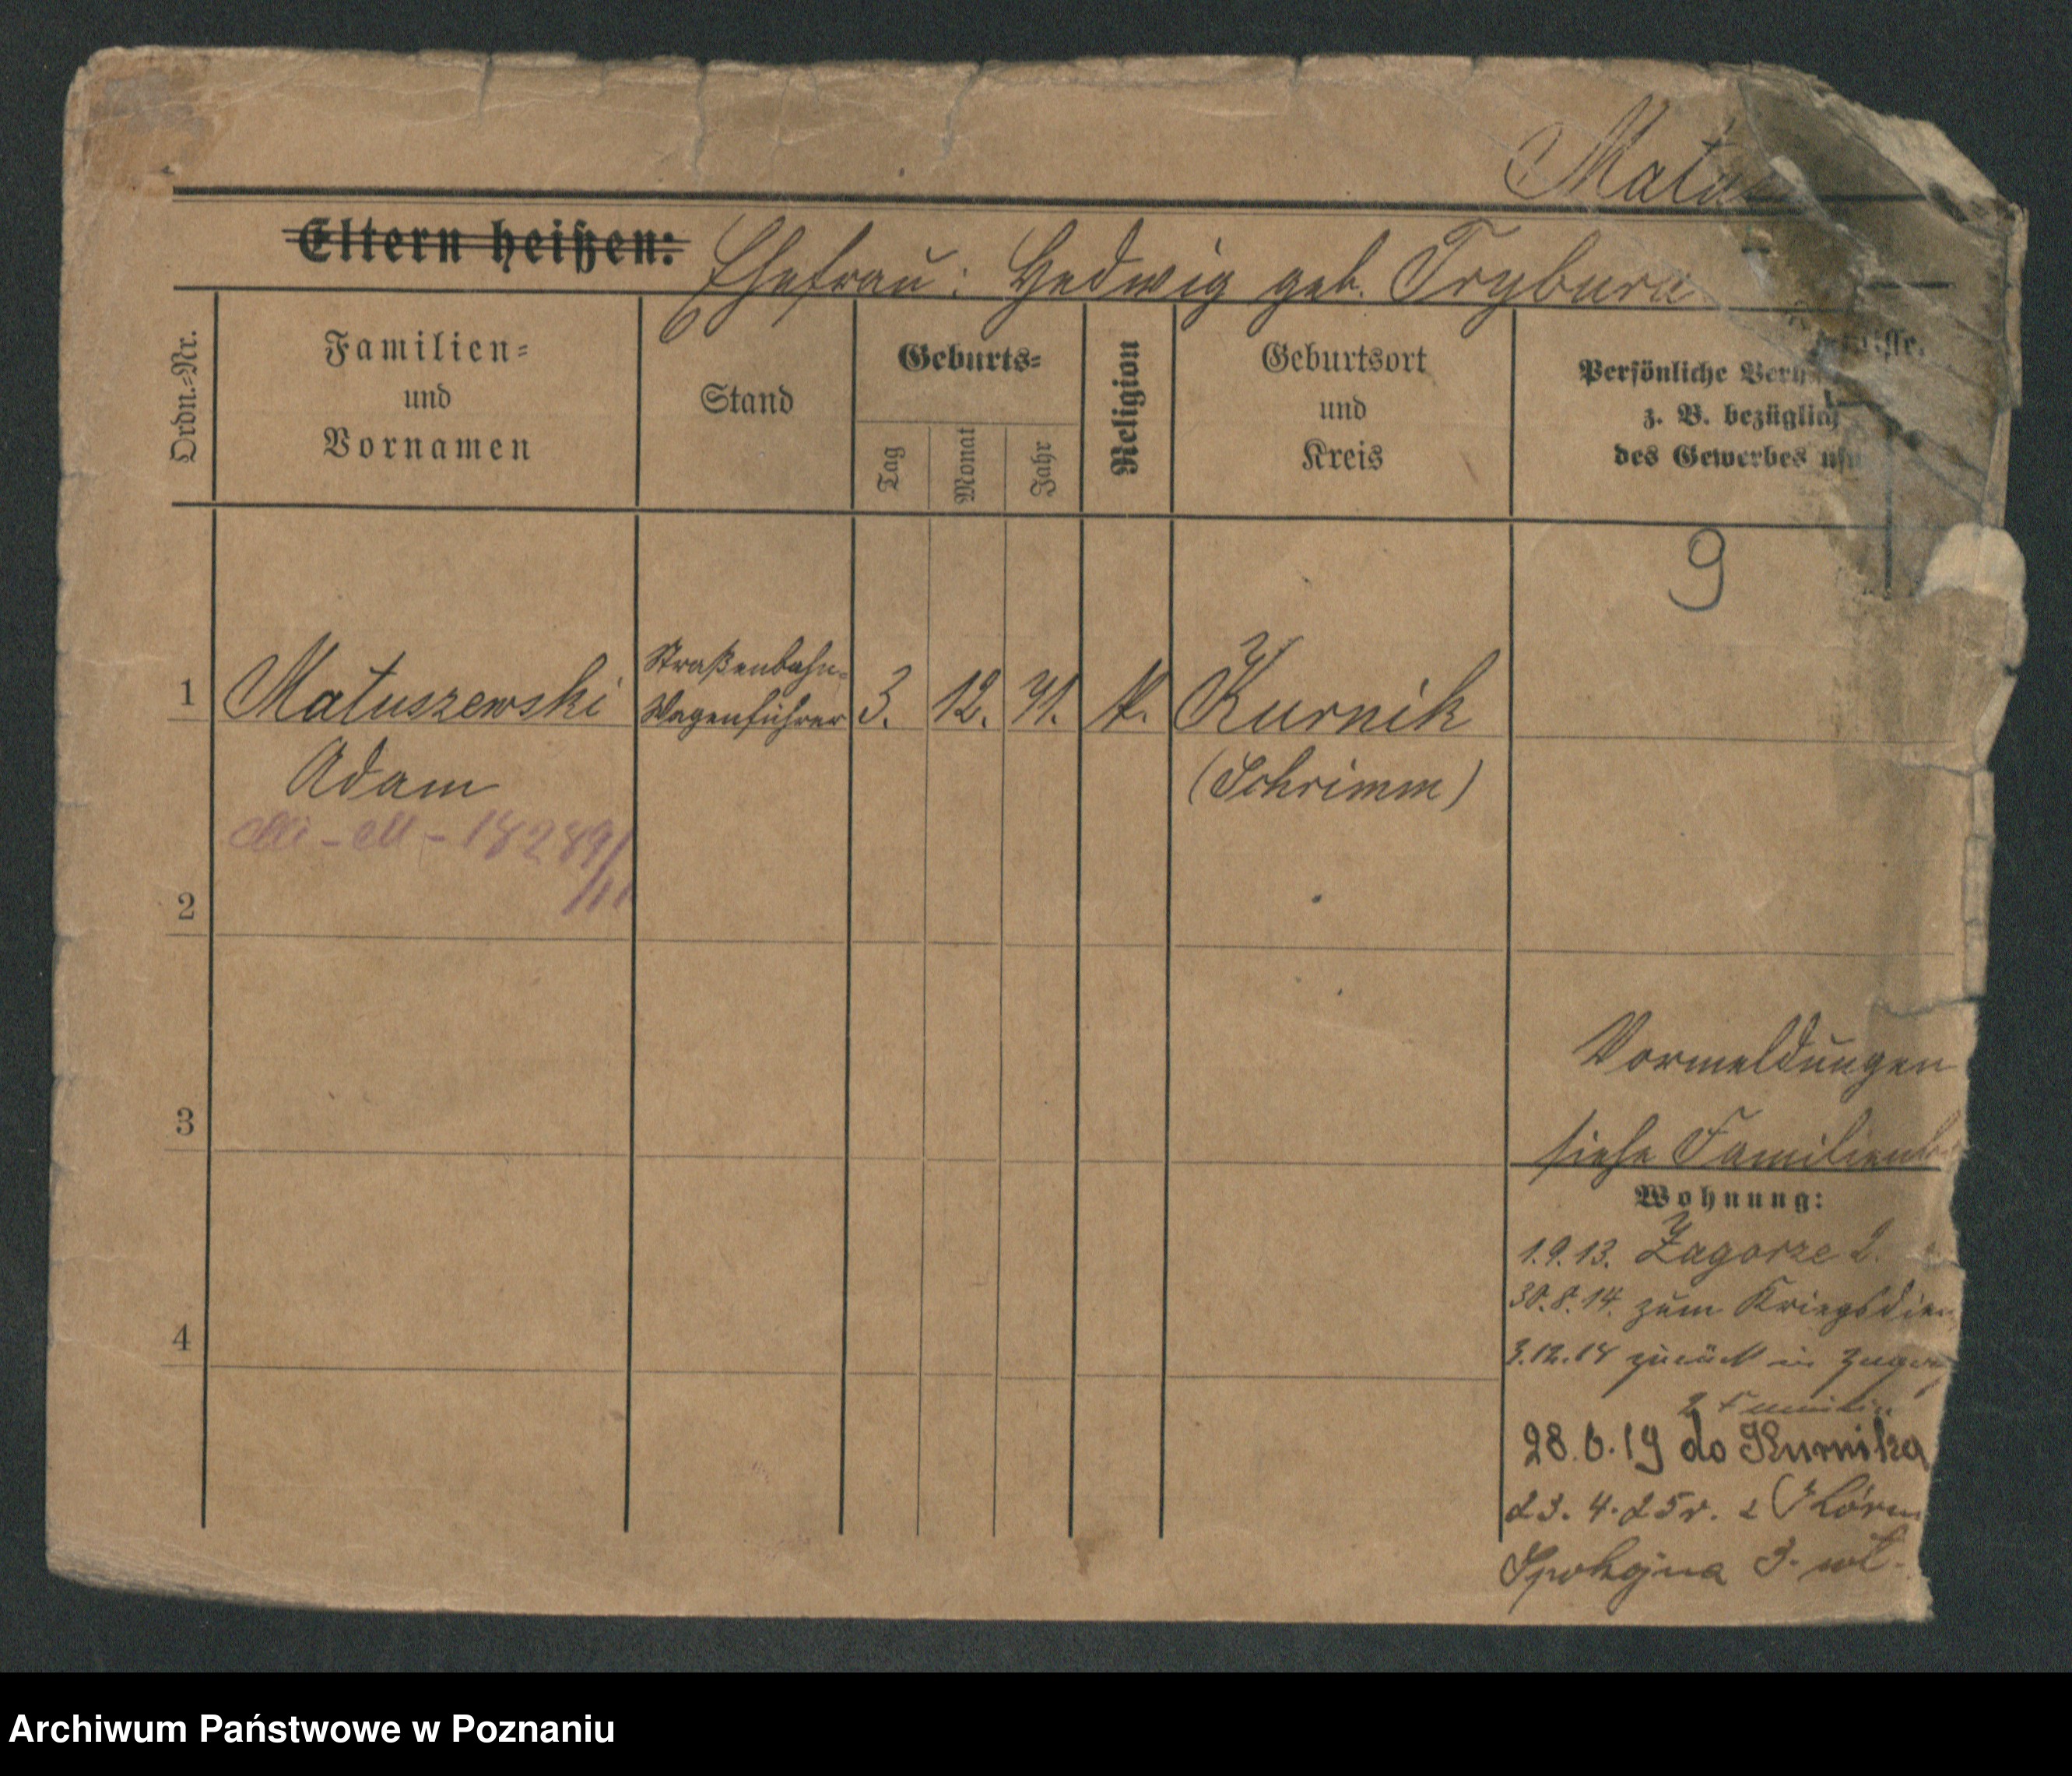 Matus
Eltern heißen: Ehefrau: Hedwig geb. Trybura
Ordn.-Nr.
Familien-
und
Vornamen
Stand
Geburts-
Tag
Monat
Jahr
Religion
Geburtsort
und
Kreis
Persönliche Verh
z. B. bezüglich
des Gewerbes usw
9
1 Matuszewski Straßenbahn- 3. 12. 71. K. Kurnik
Wagenführer
Adam (Schrimm)
2
3
4
Vormeldungen
siehe Familienb
Wohnung:
1.9.13. Zagorze 2.
30.8.14. zum Kriegsdien
3.12.18 zurück in Zagorz
2 Familie
28.6.19 do Kurnika
23. 4. 25 r. z Kórn
Spokojna 3.
Archiwum Państwowe w Poznaniu